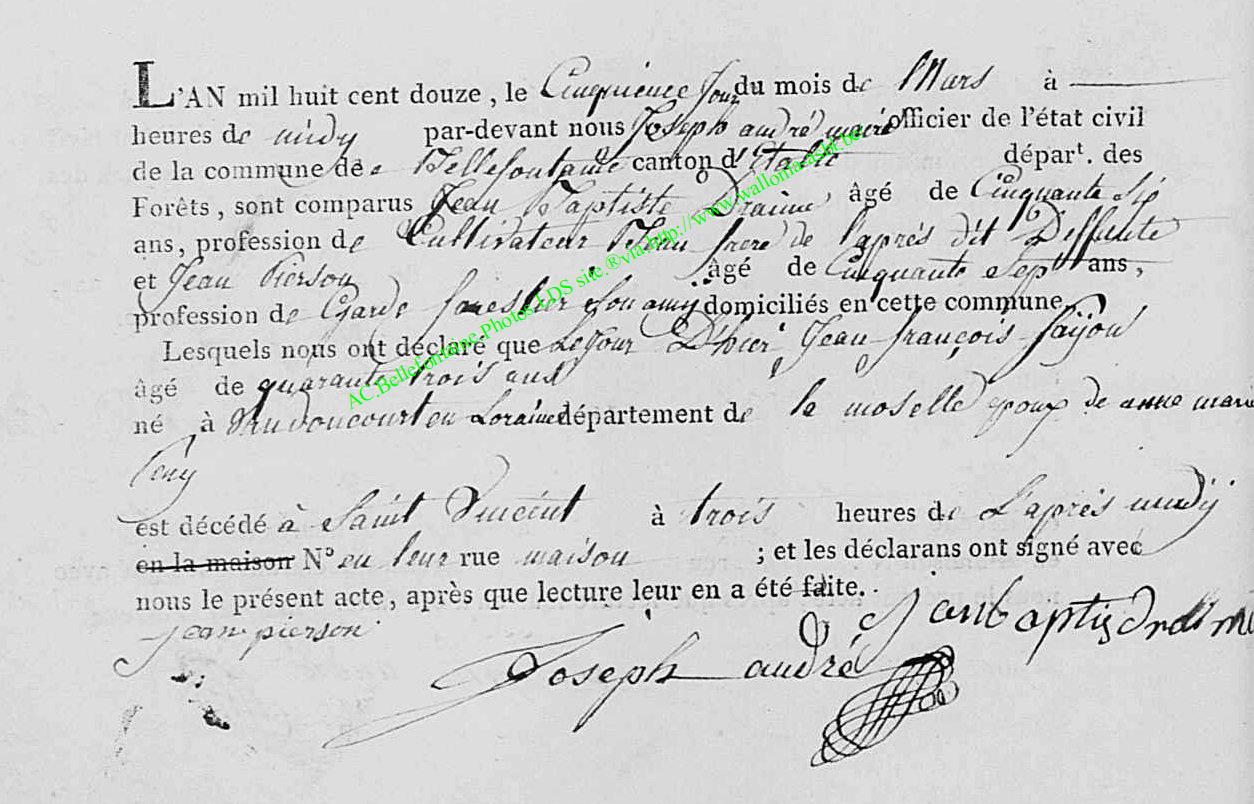 L'AN mil huit cent douze, le Cinquieme Jour du mois de Mars à
heures de midy par-devant nous Joseph andré maire officier de l'état civil
de la commune de Bellefontaine canton d'Etalle départ. des
Forêts, sont comparus Jean Baptiste Draime âgé de Cinquante six
ans, profession de Cultivateur Beau frere de l'aprés dit Deffunte
et Jean Pierson âgé de Cinquante Sept ans,
profession de Garde forestier Son amij domiciliés en cette commune
Lesquels nous ont déclaré que Le Jour D'hier Jean françois
âgé de quarante trois ans
né à en Loraine département de la moselle Epoux de anne marie
est décédé à Saint Vincent à trois heures de L'aprés midij
en la maison N° en leur rue maison ; et les déclarans ont signé avec
nous le présent acte, après que lecture leur en a été faite.
jean pierson Janbaptis
Joseph andré
AC.Bellefontaine.Photos LDS site.®via.http://www.wallonia-asbl.be